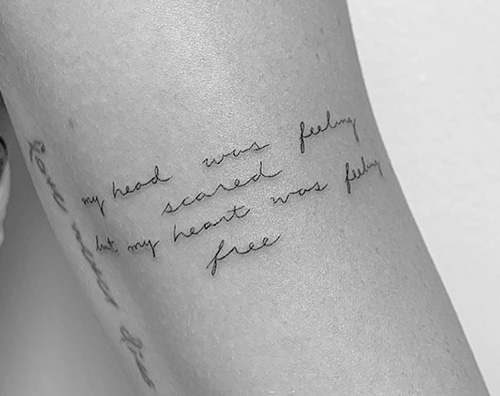 my head was feeling
scared
but my heart was feeling
free
love never dies